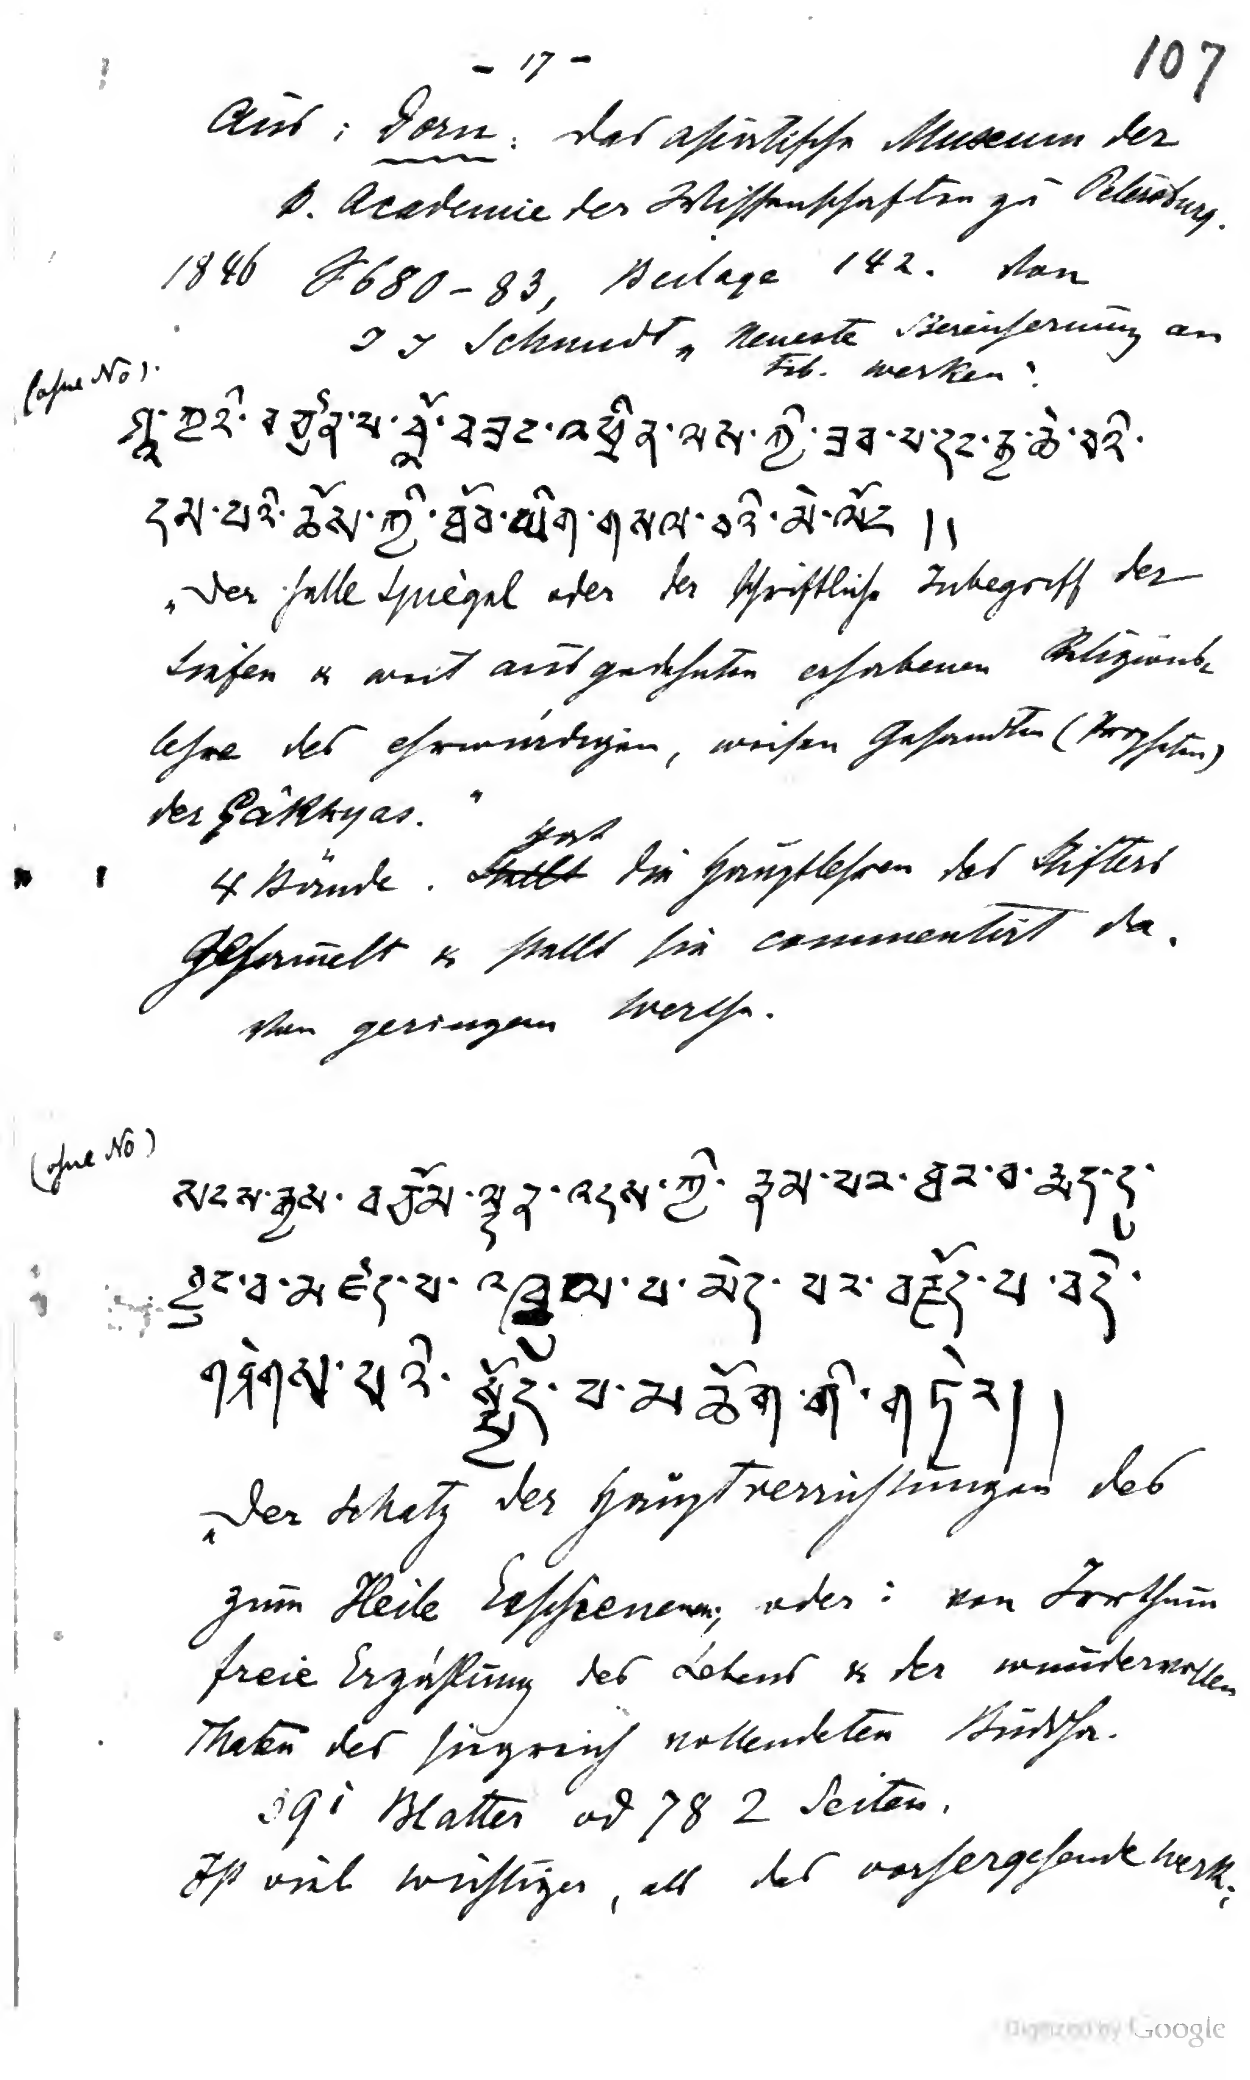 - 17 -
107
Aus: Dorn: das asiatische Museum der
k. Academie der Wissenschaften zu Petersburg.
1846 S 680-83, Beilage 142. Von
I J Schmidt „Neueste Bereicherung an
Tib. werken".
(ohne No).
ཤཱཀྱའི་བཙུན་པ་བློ་བཟང་འཕྲིན་ལས་ཀྱི་ཟབ་པ་དང་རྒྱ་ཆེ་བའི་
དམ་པའི་ཆོས་ཀྱི་ཐོབ་ཡིག་གསལ་བའི་མེ་ལོང །།
„Der helle Spiegel oder der schriftliche Inbegriff der
tiefen & weit ausgedehnten erhabenen Religions-
lehre des ehrwürdigen, weisen Gesandten (Propheten)
der Çâkkyas."
4 Bände. hat die Hauptlehren des Stifters
Gesammelt & stellt sie commentirt da.
Von geringem Werthe.
(ohne No)
སངས་རྒྱས་བཅོམ་ལྡན་འདས་ཀྱི་རྣམ་པར་ཐར་པ་རྨད་དུ་
བྱུང་བ་མཛད་པ་འཁྲུལ་པ་མེད་པར་བརྗོད་པ་བདེ་
གཤེགས་པའི་སྤྱོད་པ་མཆོག་གི་གཏེར།།
„Der Schatz der Hauptverrichtungen des
zum Heile Erschienenen, oder: von Irrthum
freie Erzählung des Lebens & der wundervollen
Thaten des siegreich vollendeten Buddha.
391 Blatter od 782 Seiten.
Ist viel wichtiger, als das vorhergehende Werk;
Digitized by Google